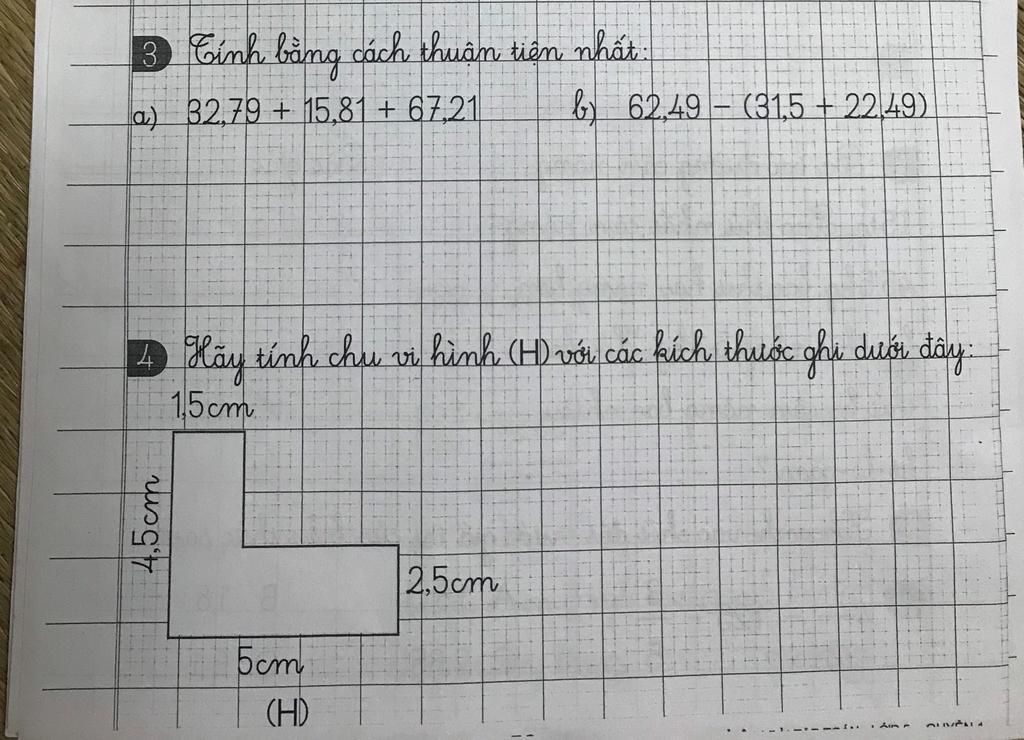 3 Tính bằng cách thuận tiện nhất:
a) 32,79 + 15,81 + 67,21 b) 62,49 - (31,5 + 22,49)
4 Hãy tính chu vi hình (H) với các kích thước ghi dưới đây:
1,5cm
4,5cm
2,5cm
5cm
(H)